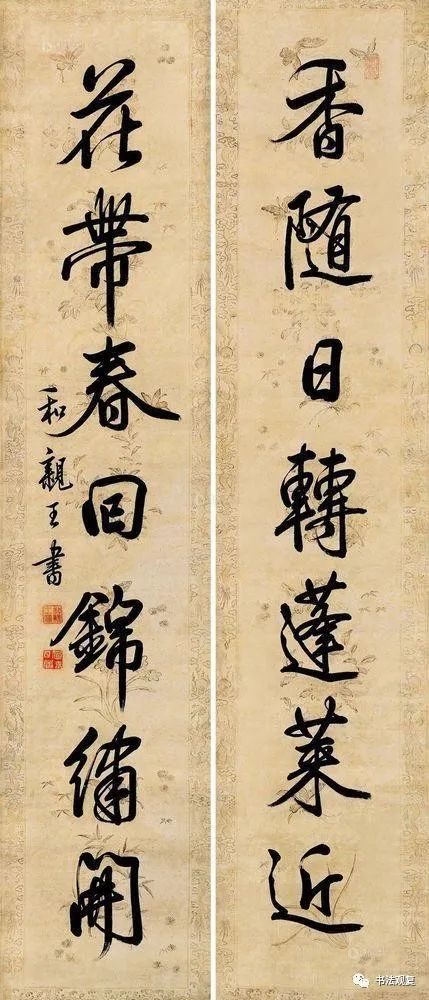 香随日轉蓬萊近
花帶春回錦繡開
和親王書
书法观复